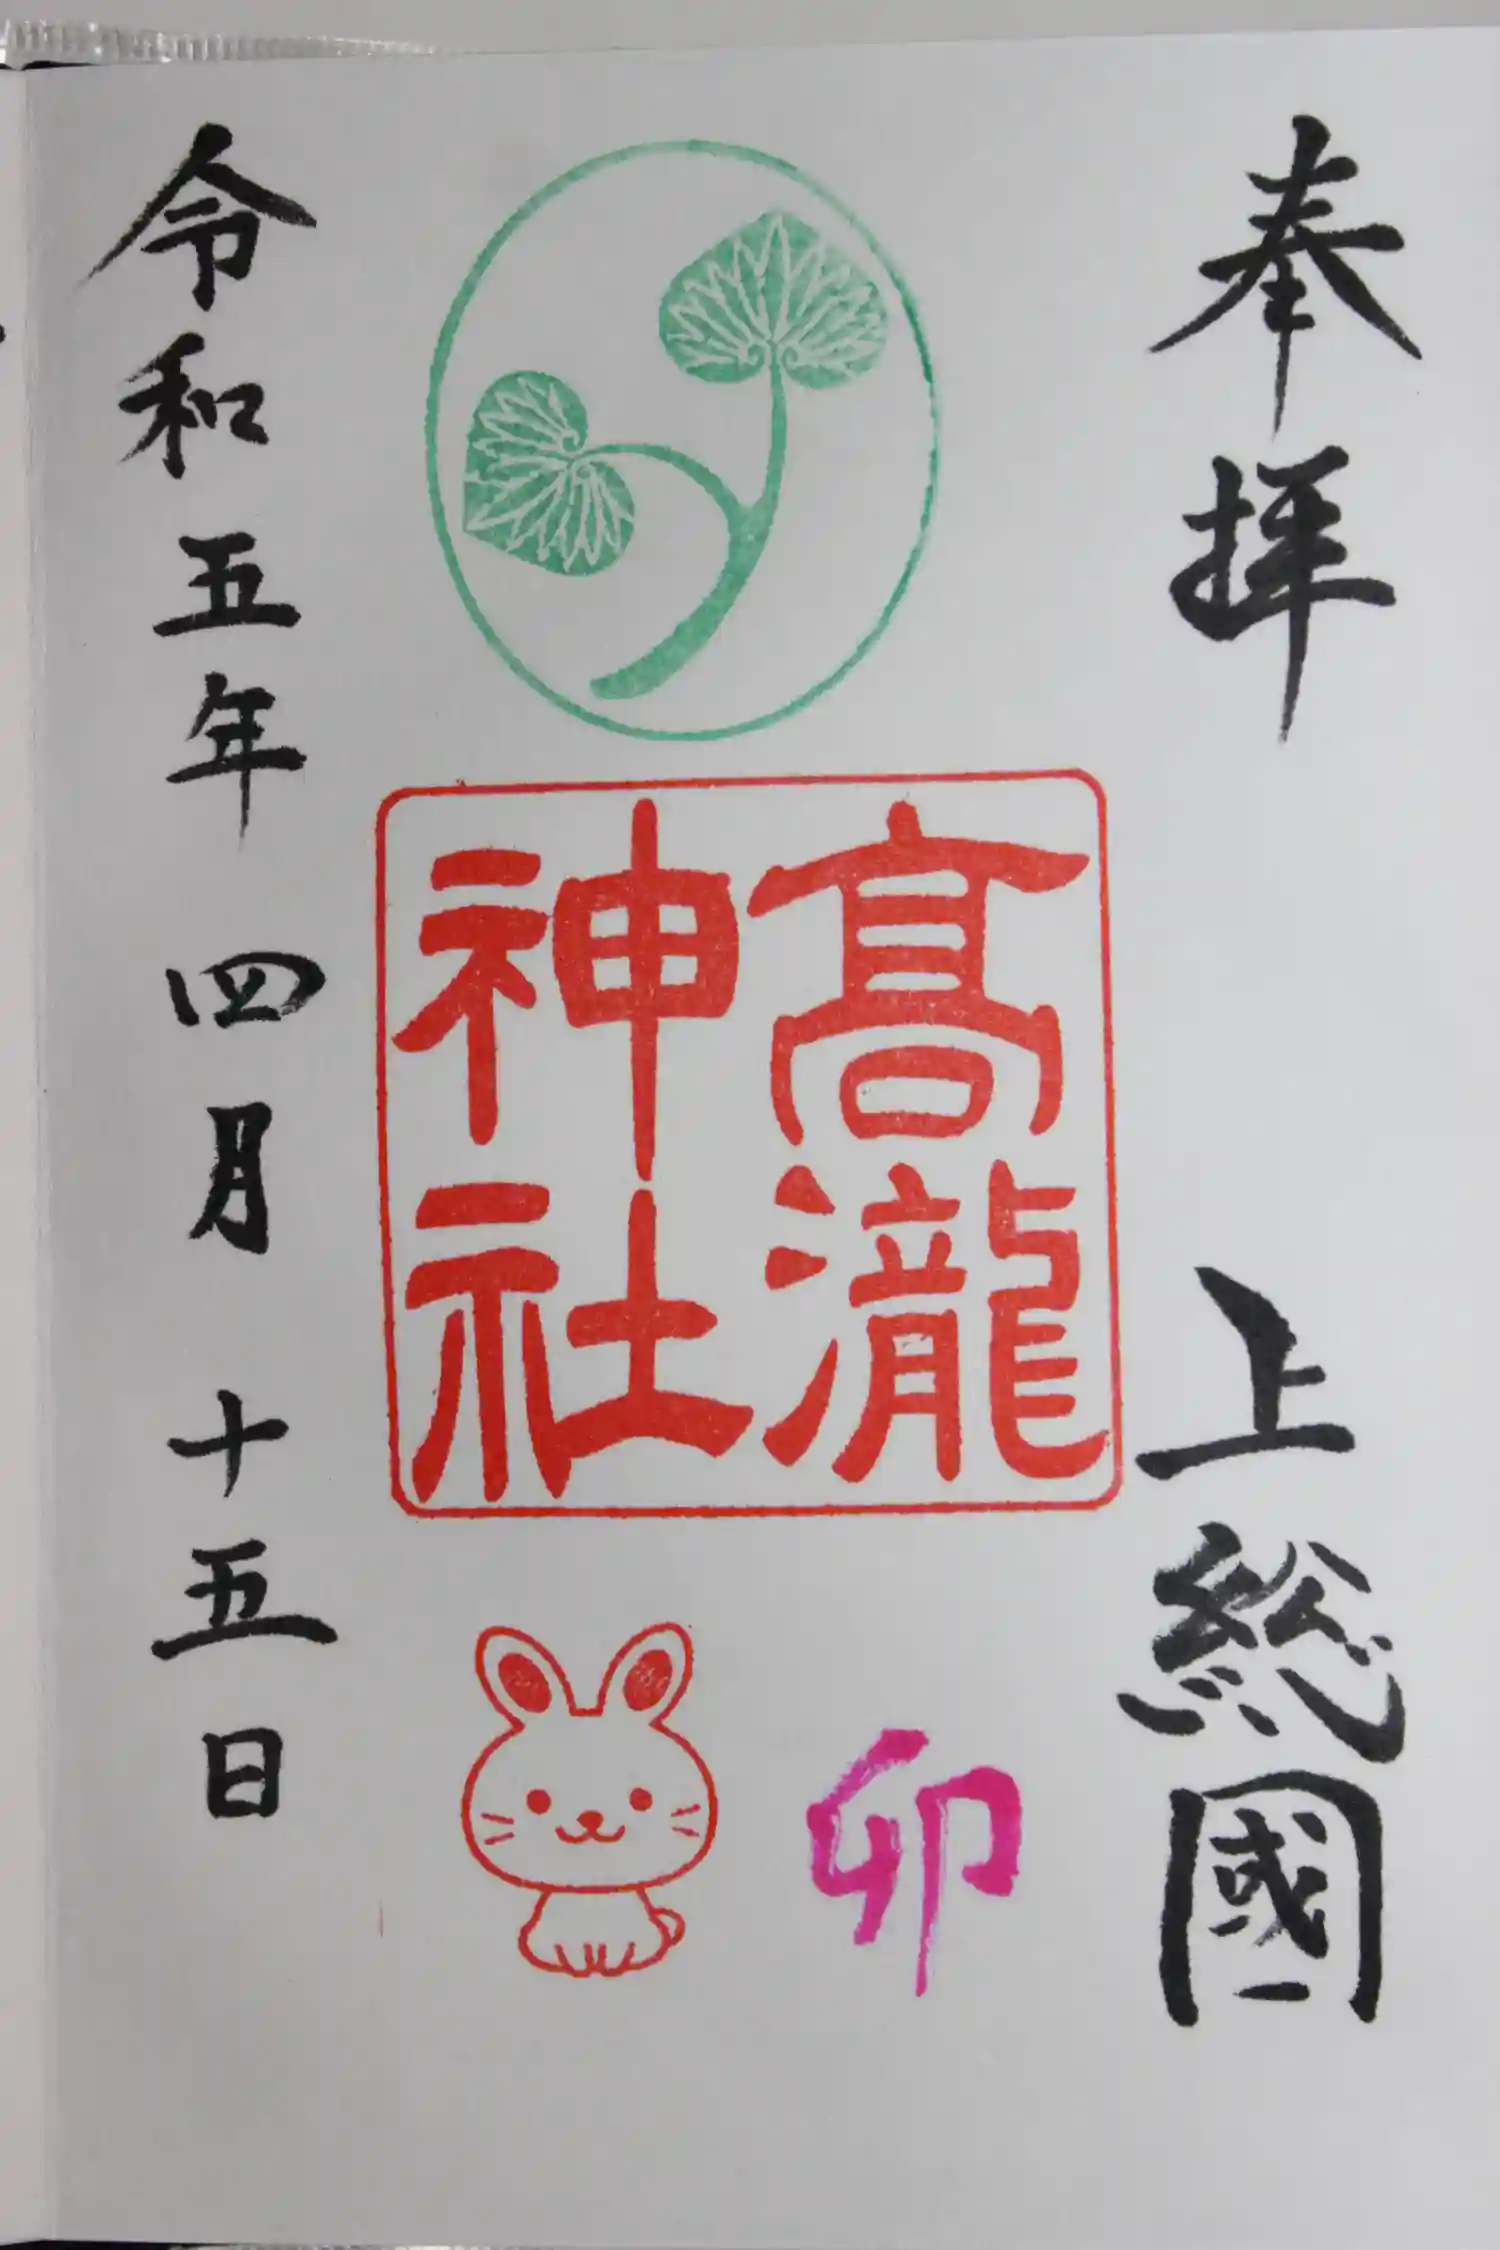 奉拝
上総國
髙瀧
神社
卯
令和五年 四月 十五日